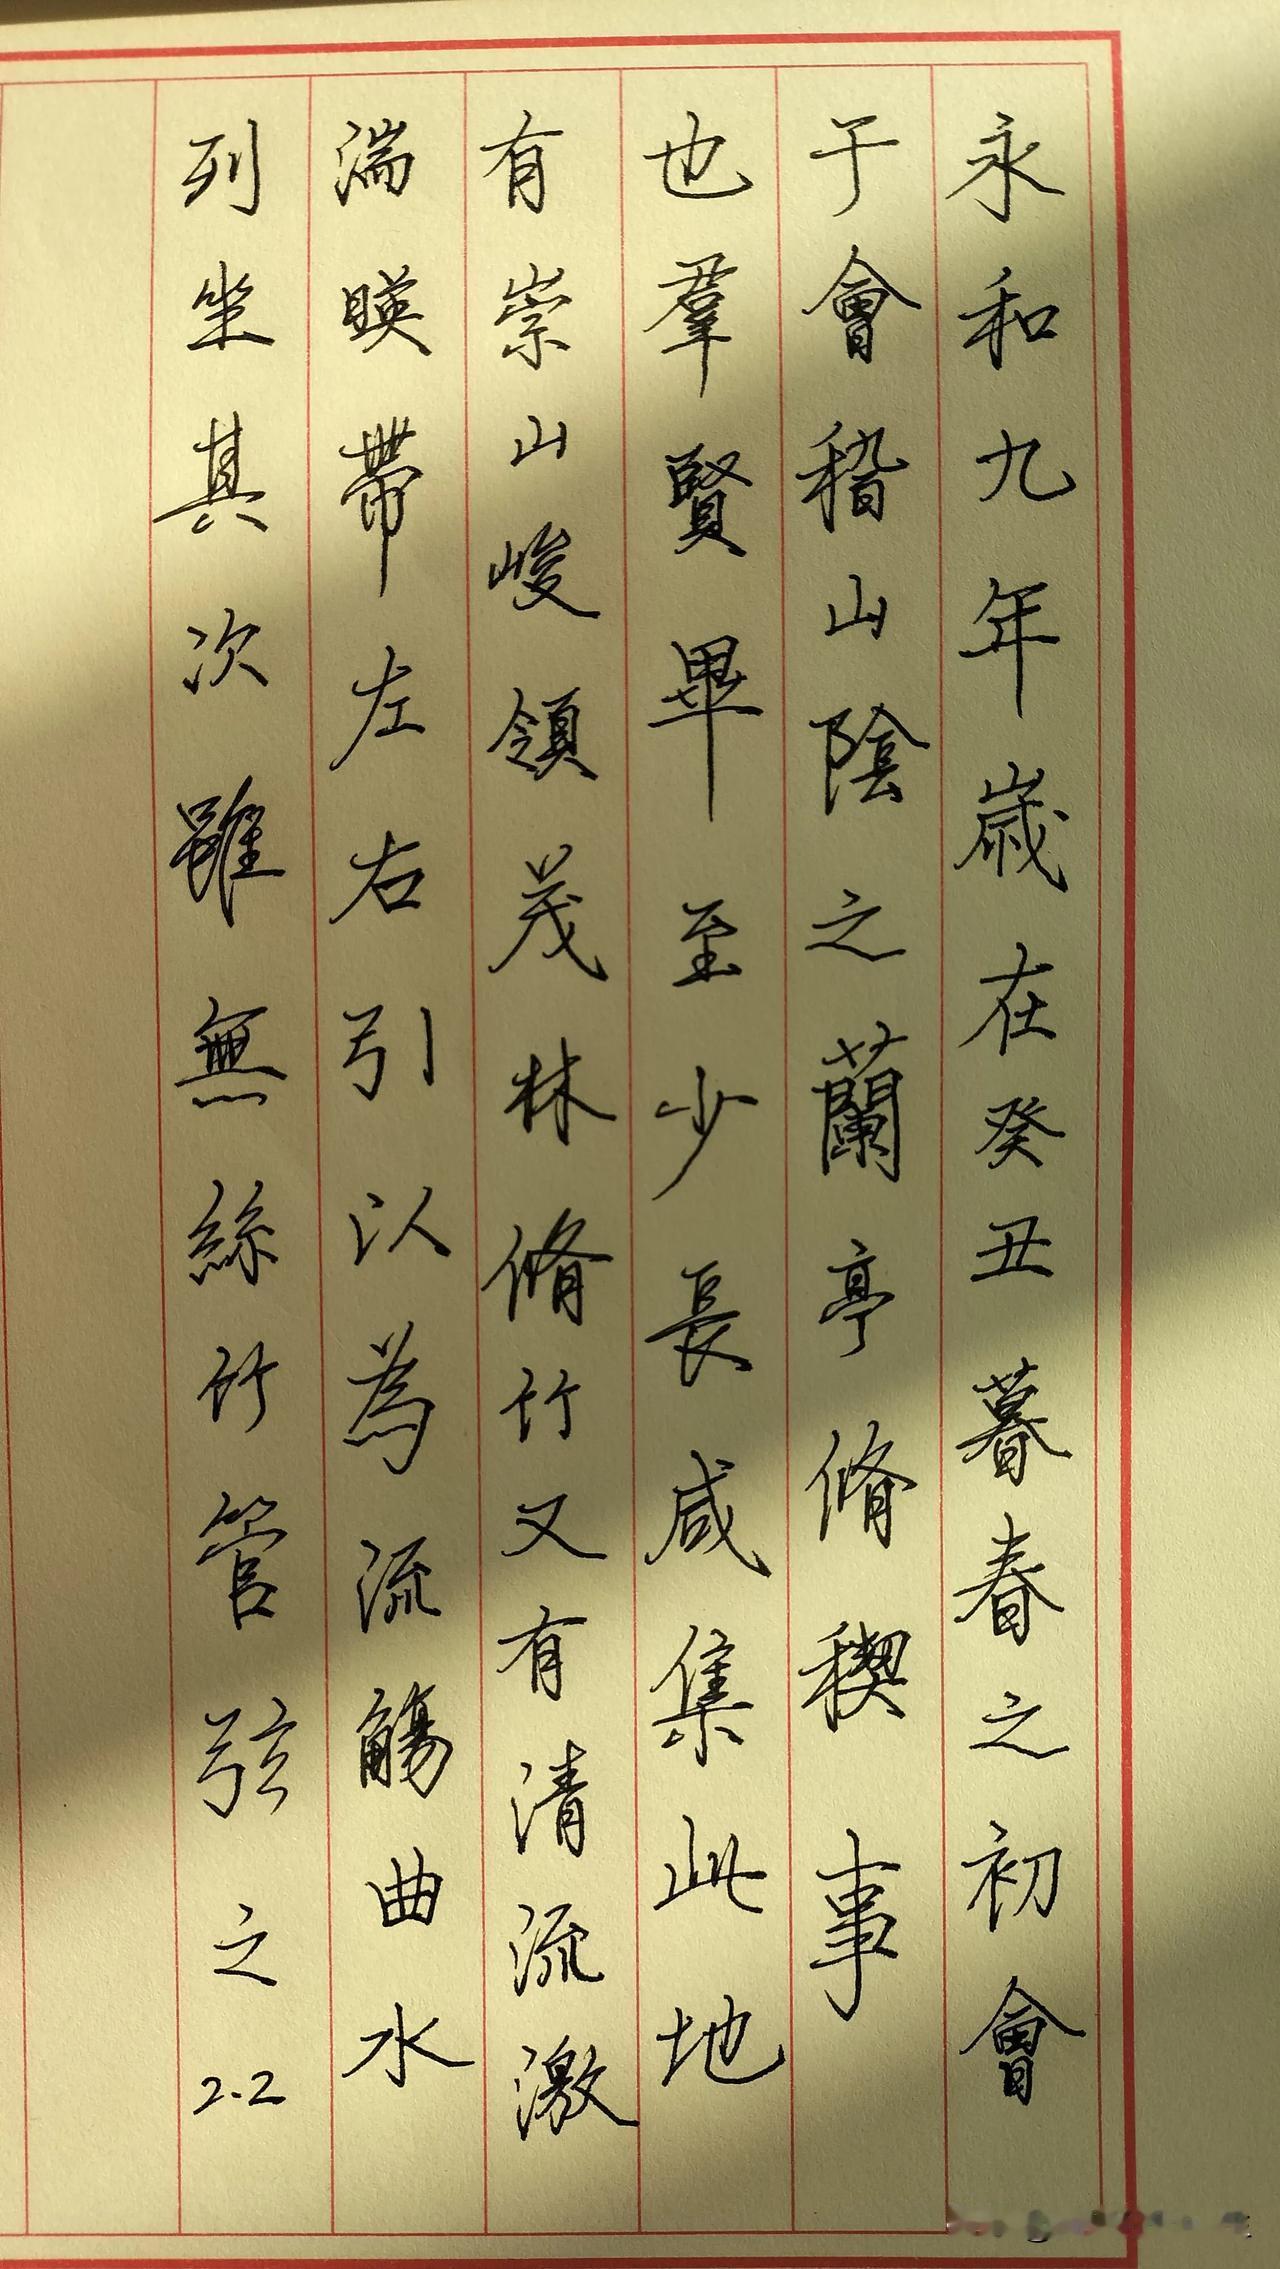 永和九年歲在癸丑暮春之初會
于會稽山陰之蘭亭脩稧事
也羣賢畢至少長咸集此地
有崇山峻領茂林脩竹又有清流激
湍暎帶左右引以為流觴曲水
列坐其次雖無絲竹管弦之
2.2